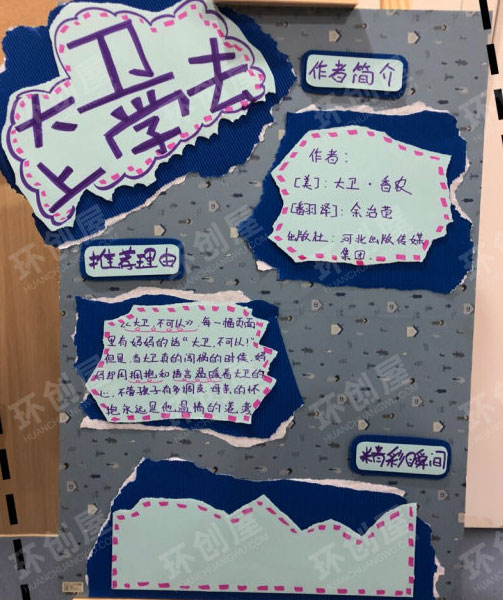 大卫
上学去
作者简介
作者：
[美]：大卫·香农
[翻译]：余治莹
出版社：河北出版传媒
集团.
推荐理由
《大卫,不可以》每一幅页面
里有妈妈的话“大卫,不可以!”
但是,当大卫真的闯祸的时候,妈
妈却用拥抱和语言温暖着大卫的
心,不管孩子有多调皮,母亲的怀
抱永远是他温情的港湾
精彩瞬间
环创屋
HUANCHUANGWU.COM